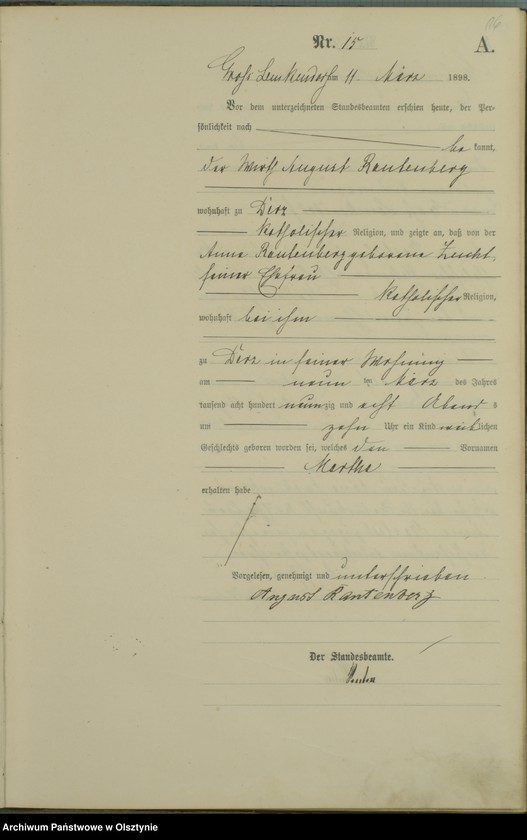 06
Nr. 15
A.
Groß Lemkendorf am 11. März 1898.
Vor dem unterzeichneten Standesbeamten erschien heute, der Per-
sönlichkeit nach
be kannt,
der Wirth August Rautenberg
wohnhaft zu Derz
katholischer Religion, und zeigte an, daß von der
Anna Rautenberg geborene
seiner Ehefrau
katholischer Religion,
wohnhaft bei ihm
zu Derz in seiner Wohnung
am neun ten März des Jahres
tausend acht hundert neunzig und acht Abends
um zehn Uhr ein Kind weiblichen
Geschlechts geboren worden sei, welches den Vornamen
Martha
erhalten habe
Vorgelesen, genehmigt und unterschrieben
August Rautenberg
Der Standesbeamte.
Archiwum Państwowe w Olsztynie